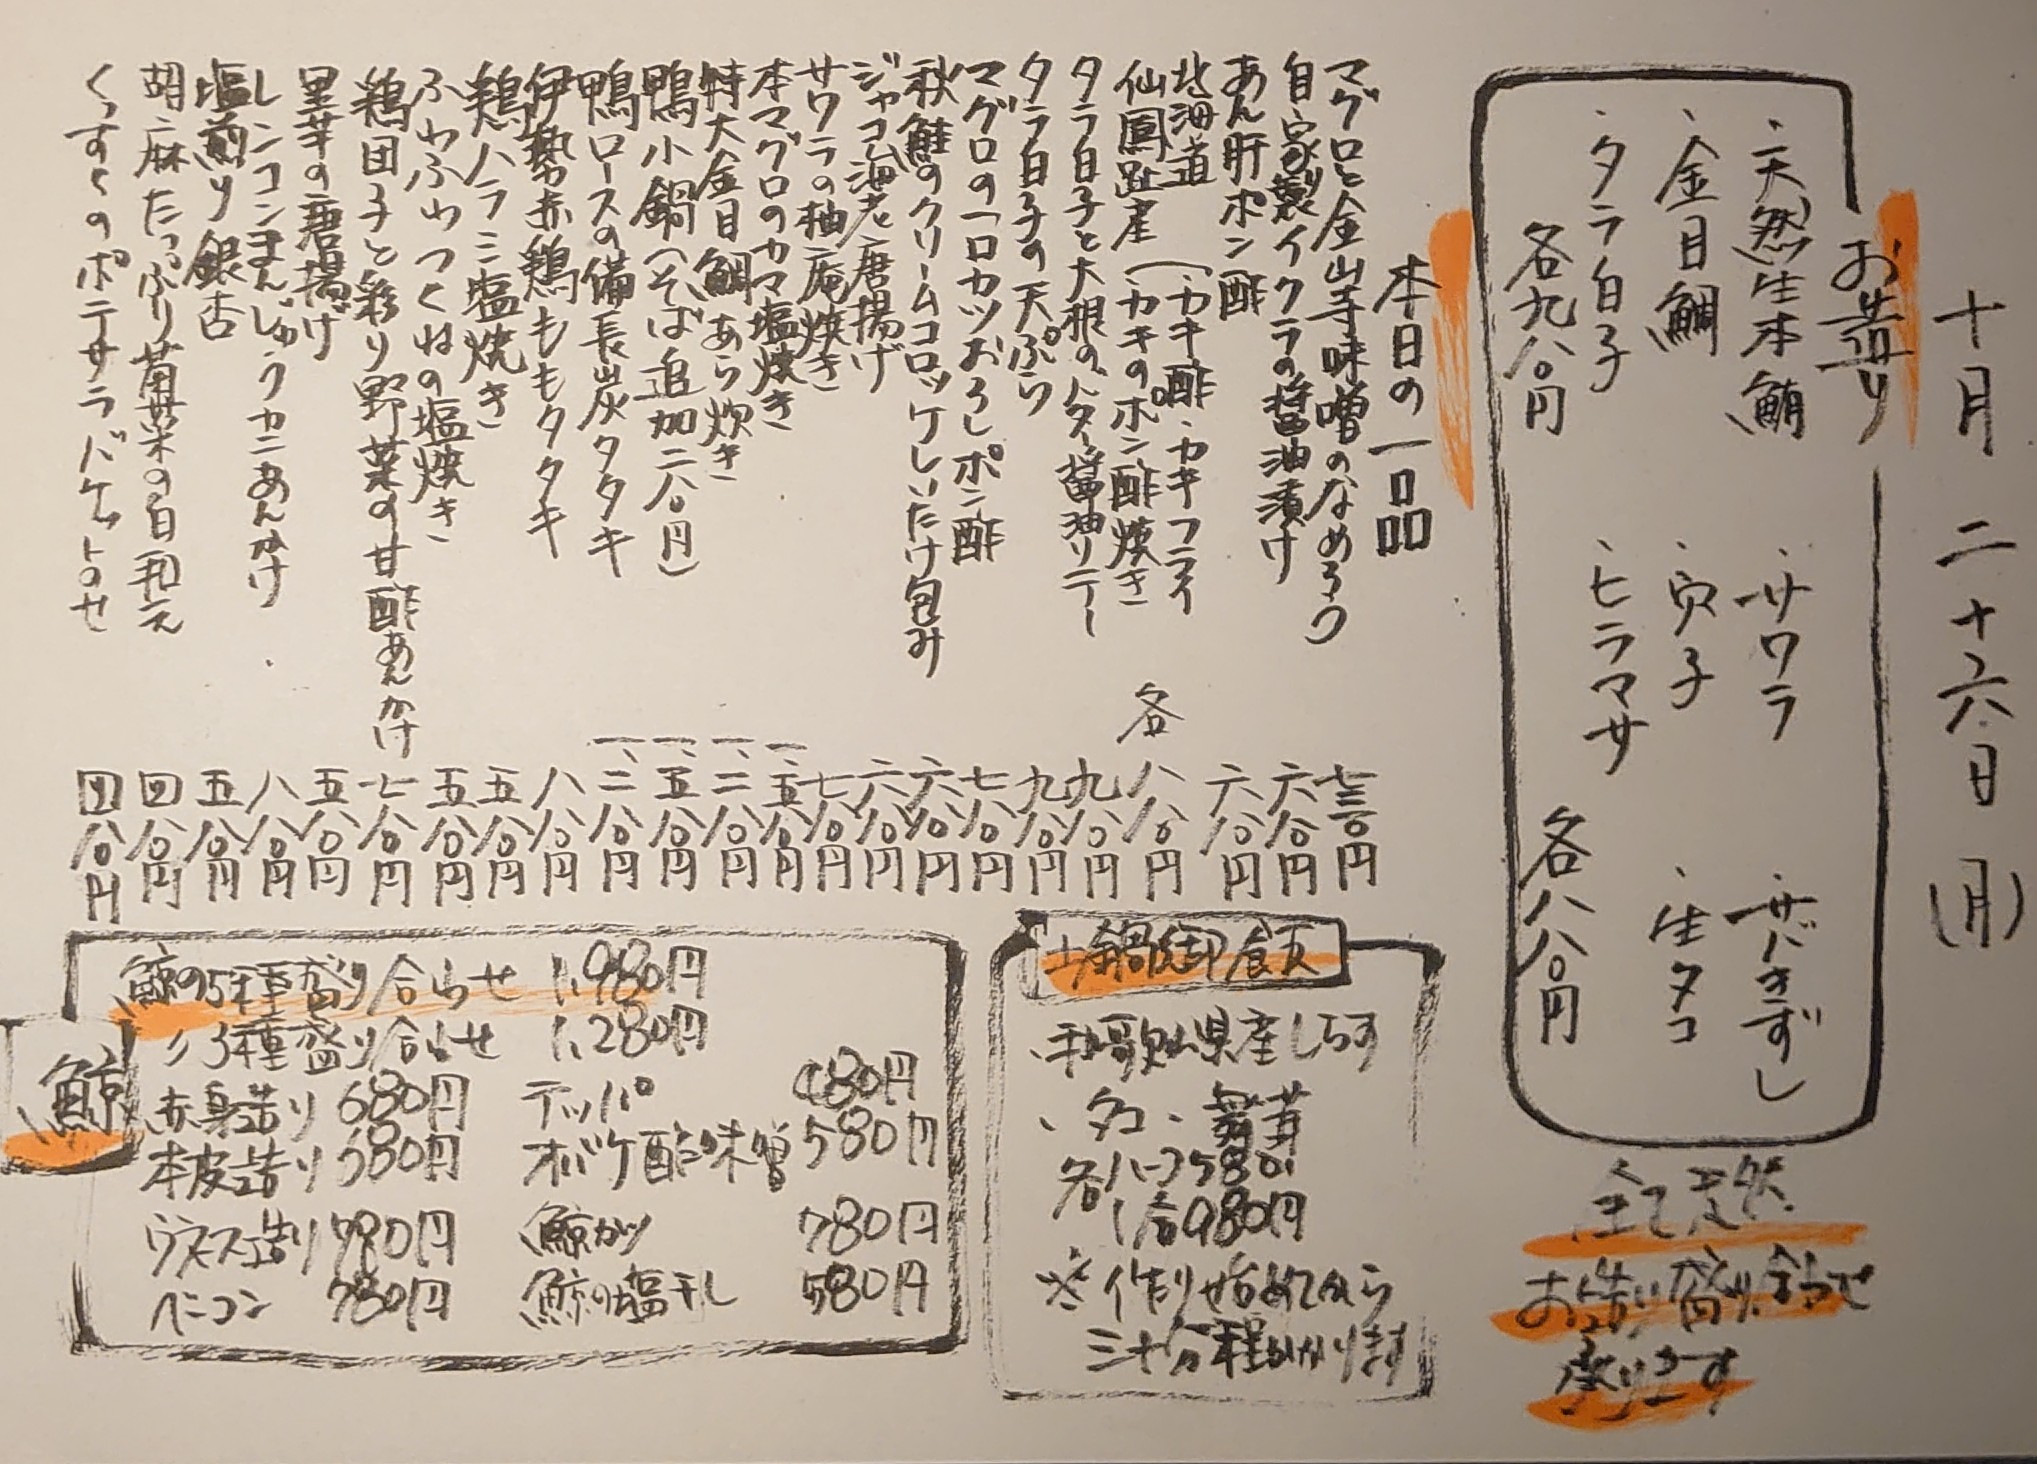 十月二十六日(月)
お造り
・天然生本鮪
・サワラ
・サバきずし
・金目鯛
・穴子
・生タコ
・タラ白子
・ヒラマサ
各九八〇円
各八八〇円
全て天然
お造り盛り合わせ
承ります
本日の一品
マグロと金山寺味噌のなめろう 七三〇円
自家製イクラの醤油漬け 六八〇円
あん肝ポン酢 六八〇円
北海道
仙鳳趾産(・カキ酢・カキフライ
・カキのポン酢焼き 各八八〇円
タラ白子と大根のバター醤油ソテー 九八〇円
タラ白子の天ぷら 九八〇円
マグロの一口カツおろしポン酢 七八〇円
秋鮭のクリームコロッケしいたけ包み 六八〇円
ジャコ海老唐揚げ 六八〇円
サワラの柚庵焼き 七八〇円
本マグロのカマ塩焼き 一、五八〇円
特大金目鯛あら炊き 一、二八〇円
鴨小鍋(そば追加二八〇円) 一、五八〇円
鴨ロースの備長炭タタキ 一、二八〇円
伊勢赤鶏ももタタキ 八八〇円
鶏ハラミ塩焼き 五八〇円
ふわふわつくねの塩焼き 五八〇円
鶏団子と彩り野菜の甘酢あんかけ 七八〇円
里芋の唐揚げ 五八〇円
レンコンまんじゅうカニあんかけ 八八〇円
塩煎り銀杏 五八〇円
胡麻たっぷり菊菜の白和え 四八〇円
くっすくのポテサラバケットのせ 四八〇円
土鍋御飯
・和歌山県産しらす
・タコ・舞茸
各ハーフ580円
1合980円
※作り始めてから
三十分程かかります
鯨
鯨の5種盛り合わせ 1,980円
〃3種盛り合わせ 1,280円
赤身造り 680円
テッパ 480円
本皮造り 580円
オバケ酢味噌 580円
ウネス造り 780円
鯨カツ 780円
ベーコン 780円
鯨の塩干し 580円